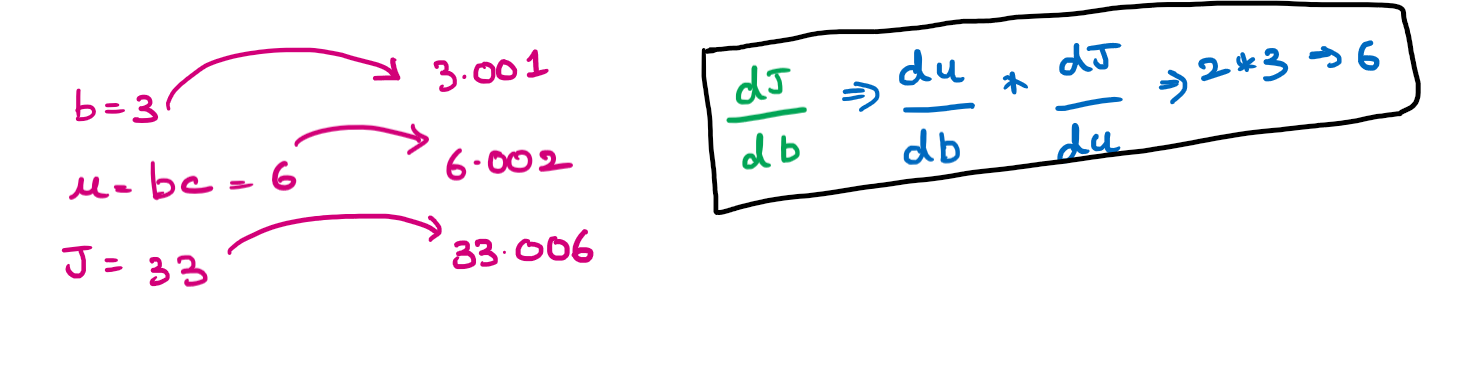 b = 3 → 3.001
u = bc = 6 → 6.002
J = 33 → 33.006
dJ/db ⇒ du/db * dJ/du ⇒ 2*3 → 6